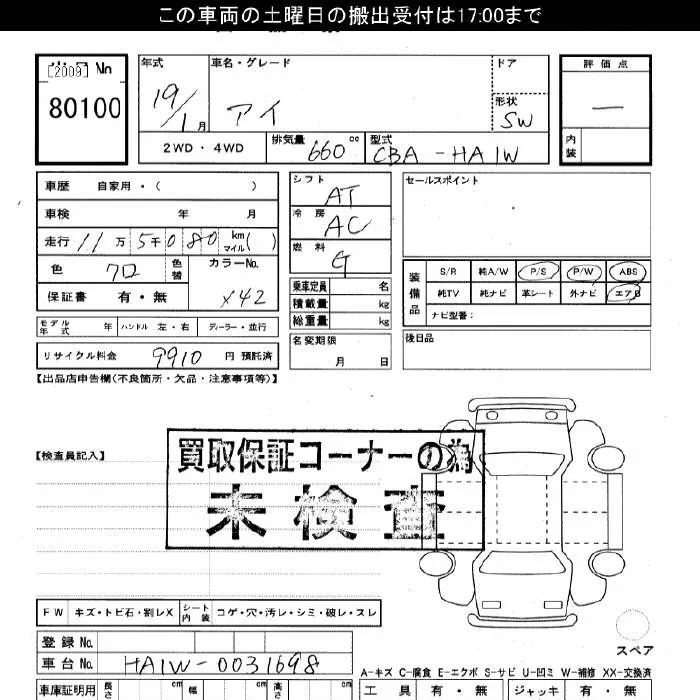 この車両の土曜日の搬出受付は17:00まで
[2009] No
80100
年式 19/1月
車名・グレード アイ
ドア
形状 SW
評価点 —
内装
2WD・4WD
排気量 660 cc
型式 CBA-HA1W
車歴 自家用・( )
車検 年 月
走行 11万5千080 km マイル( )
色 クロ 色替 カラーNo. X42
保証書 有・無
モデル年式 年 ハンドル 左・右 ディーラー・並行
リサイクル料金 9910 円 預託済
シフト AT
冷房 AC
燃料 G
乗車定員 名
積載量 kg
総重量 kg
名変期限 月 日
セールスポイント
装備品 S/R 純A/W P/S P/W ABS
純TV 純ナビ 革シート 外ナビ エアB
ナビ型番:
後日品
【出品店申告欄(不良箇所・欠品・注意事項等)】
【検査員記入】
買取保証コーナーの為
未検査
FW キズ・トビ石・割レX シート内装 コゲ・穴・汚レ・シミ・破レ・スレ
登録No.
車台No. HA1W-0031698
スペア
A-キズ C-腐食 E-エクボ S-サビ U-凹ミ W-補修 XX-交換済
車庫証明用 長さ cm 幅 cm 高さ cm
工具 有・無 ジャッキ 有・無